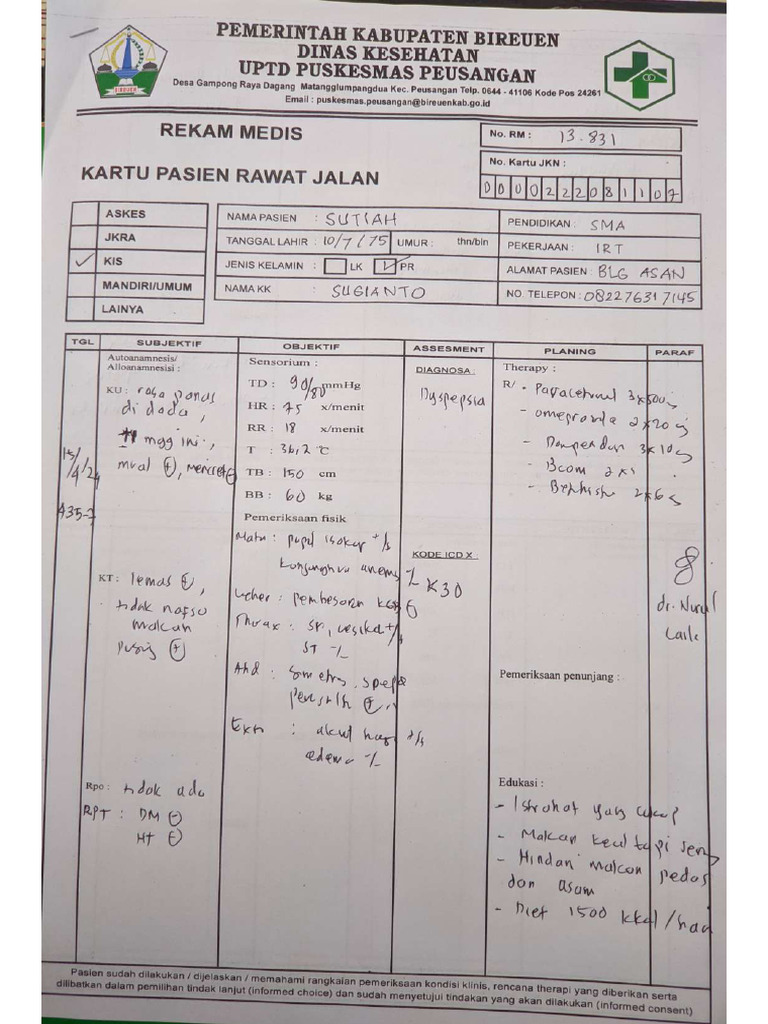 PEMERINTAH KABUPATEN BIREUEN
DINAS KESEHATAN
UPTD PUSKESMAS PEUSANGAN
Desa Gampong Raya Dagang Matangglumpangdua Kec. Peusangan Telp. 0644 - 41106 Kode Pos 24261
Email : puskesmas.peusangan@bireuenkab.go.id
BIREUEN
REKAM MEDIS
KARTU PASIEN RAWAT JALAN
No. RM : 13.831
No. Kartu JKN :
0000222081107
ASKES
JKRA
✓ KIS
MANDIRI/UMUM
LAINYA
NAMA PASIEN : SUTIAH
TANGGAL LAHIR : 10/7/75 UMUR : thn/bln
JENIS KELAMIN : LK ✓ PR
NAMA KK : SUGIANTO
PENDIDIKAN : SMA
PEKERJAAN : IRT
ALAMAT PASIEN : BLG ASAN
NO. TELEPON : 082276317145
TGL SUBJEKTIF OBJEKTIF ASSESMENT PLANING PARAF
15/4/24
435-7
Autoanamnesis/
Alloanamnesisi :
KU : rasa panas
di dada,
mgg ini,
mual (+), mencret (-)
KT : lemas (+),
tidak nafsu
makan
pusing (+)
Rpo : tidak ada
RPT : DM (-)
HT (-)
Sensorium :
TD : 90/80 mmHg
HR : 75 x/menit
RR : 18 x/menit
T : 36,2 °C
TB : 150 cm
BB : 60 kg
Pemeriksaan fisik
Mata : pupil isokor +/+
konjungtiva anemis -/-
Leher : pembesaran KGB (-)
Thorax : sp, vesikular +/+
ST -/-
Abd : simetris,
peristaltik (+),
Eks : akral hangat +/+
edema -/-
DIAGNOSA :
Dyspepsia
KODE ICD X :
K30
Therapy :
R/ - Paracetamol 3x500
- omeprazole 2x20
- Domperidon 3x10
- Bcom 2x1
- 2x6
Pemeriksaan penunjang :
Edukasi :
- Istirahat yang cukup
- Makan kecil tapi sering
- Hindari makan pedas
dan asam
- Diet 1500 kkal/hari
dr. Nurul
Laila
Pasien sudah dilakukan / dijelaskan / memahami rangkaian pemeriksaan kondisi klinis, rencana therapi yang diberikan serta
dilibatkan dalam pemilihan tindak lanjut (informed choice) dan sudah menyetujui tindakan yang akan dilakukan (informed consent)